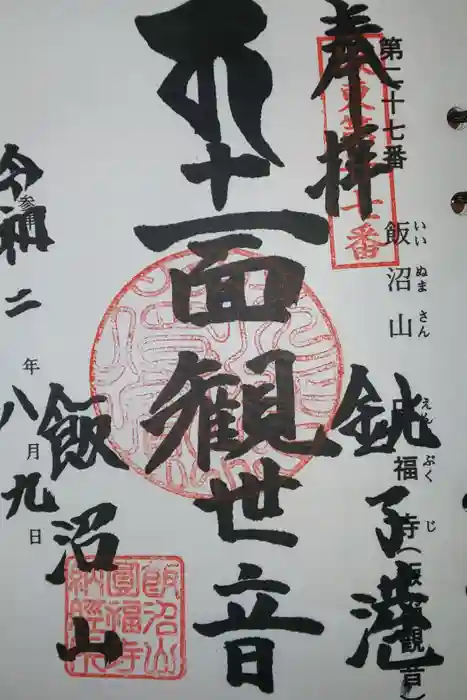 第二十七番
飯沼山
いいぬまさん
福寺(飯沼観音
えんぷくじ
奉拝
東第二十七番
銚子港
十一面観世音
飯沼山
飯沼山
圓福寺
納經
参拝
令和二年八月九日